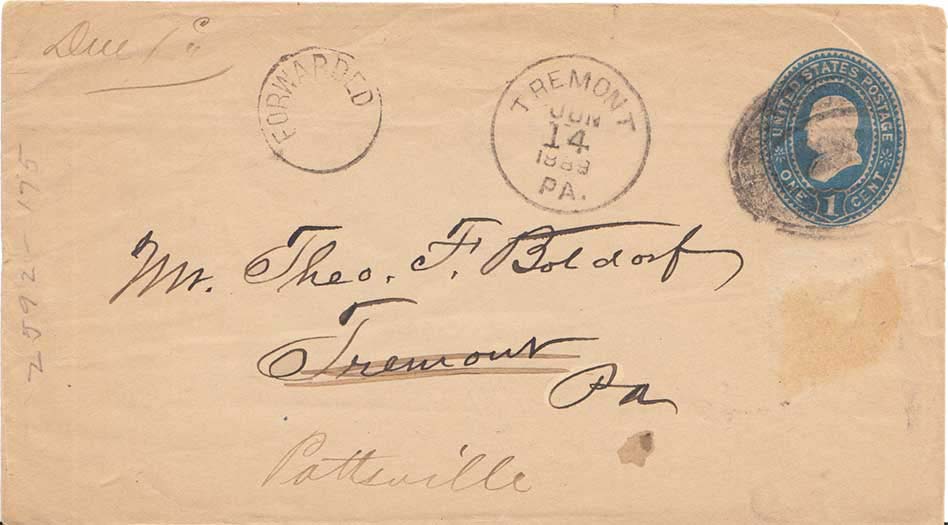 Due 1c
FORWARDED
TREMONT
JUN
14
1889
PA.
UNITED STATES POSTAGE
ONE 1 CENT
Mr. Theo. F. Boldorf
Tremont
Pa
Pottsville
2592-175